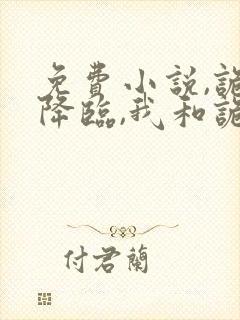 免費小說,詭
降臨,我和詭
付君蘭